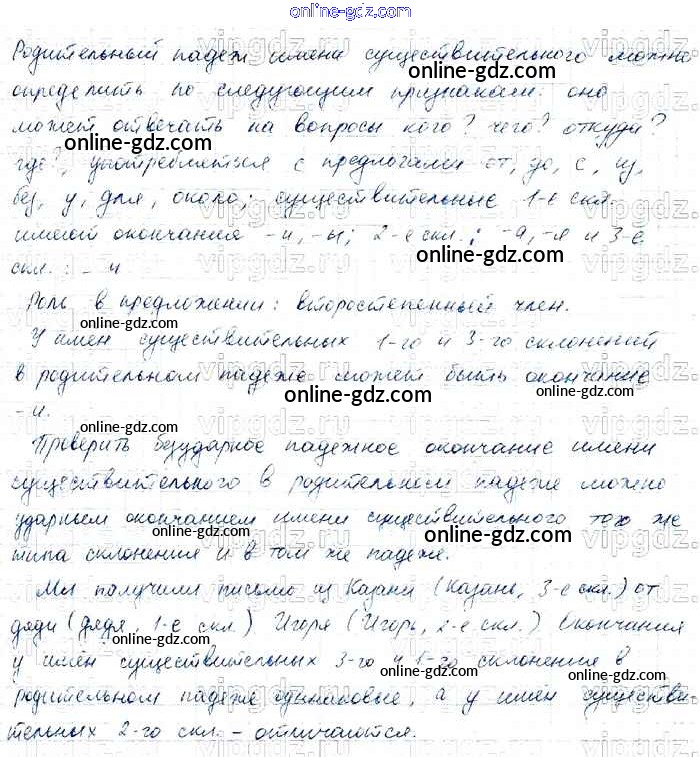 online-gdz.com
Родительный падеж имени существительного можно
online-gdz.com
определить по следующим признакам: оно
может отвечать на вопросы кого? чего? откуда?
online-gdz.com online-gdz.com
где?, употребляться с предлогами от, до, с, из,
без, у, для, около; существительные 1-е скл.
имеют окончания -и, -ы; 2-е скл.: -а, -я и 3-е
online-gdz.com
скл.: -и.
Роль в предложении: второстепенный член.
online-gdz.com
У имен существительных 1-го и 3-го склонений
online-gdz.com
в родительном падеже может быть окончание
online-gdz.com online-gdz.com
-и.
online-gdz.com
Проверить безударное падежное окончание имени
существительного в родительном падеже можно
online-gdz.com
ударным окончанием имени существительного того же
online-gdz.com
типа склонения и в том же падеже.
online-gdz.com
Мы получили письмо из Казани (Казань, 3-е скл.) от
дяди (дядя, 1-е скл.) Игоря (Игорь, 2-е скл.) Окончания
online-gdz.com online-gdz.com
у имён существительных 3-го и 1-го склонения в
online-gdz.com
родительном падеже одинаковые, а у имён существи-
online-gdz.com online-gdz.com
тельных 2-го скл. - отличаются.